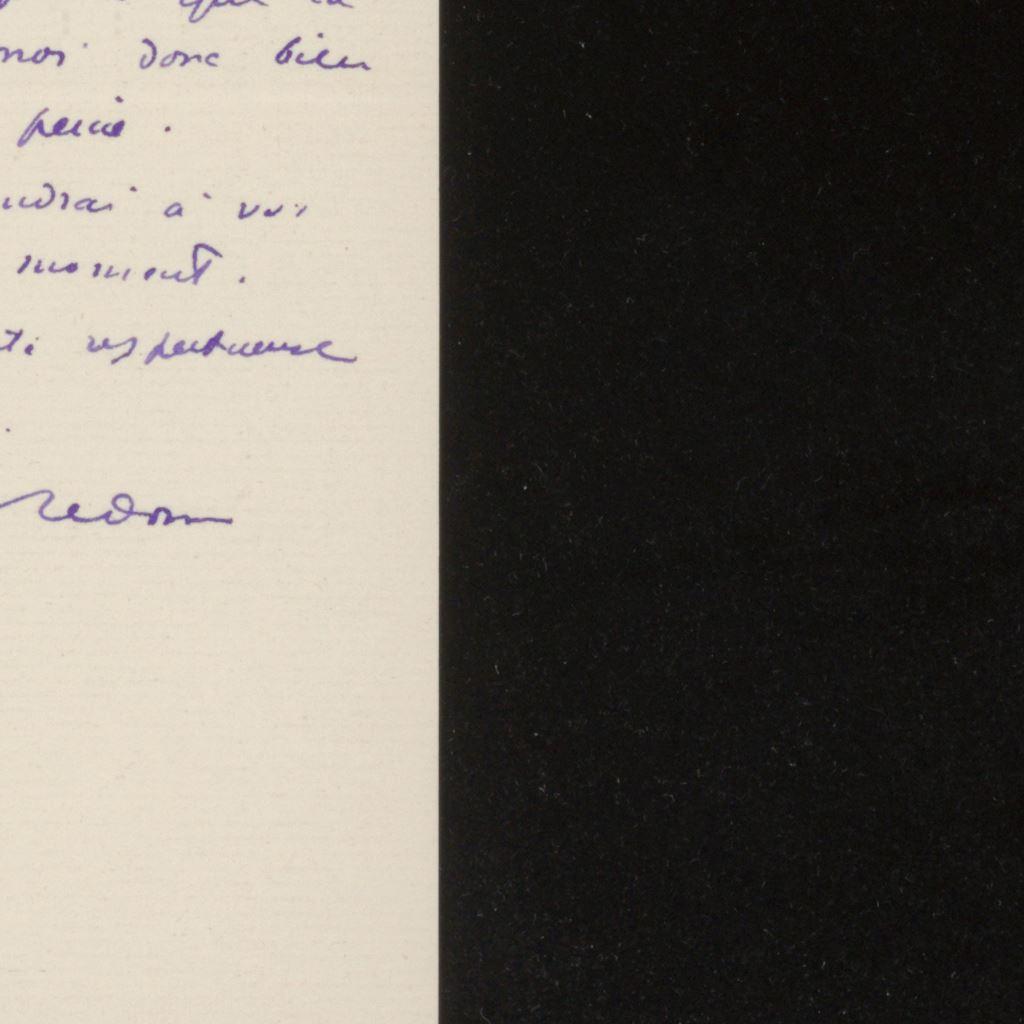 que la
moi donc bien
peine.
endrai à vos
moment.
respectueuse
Redon